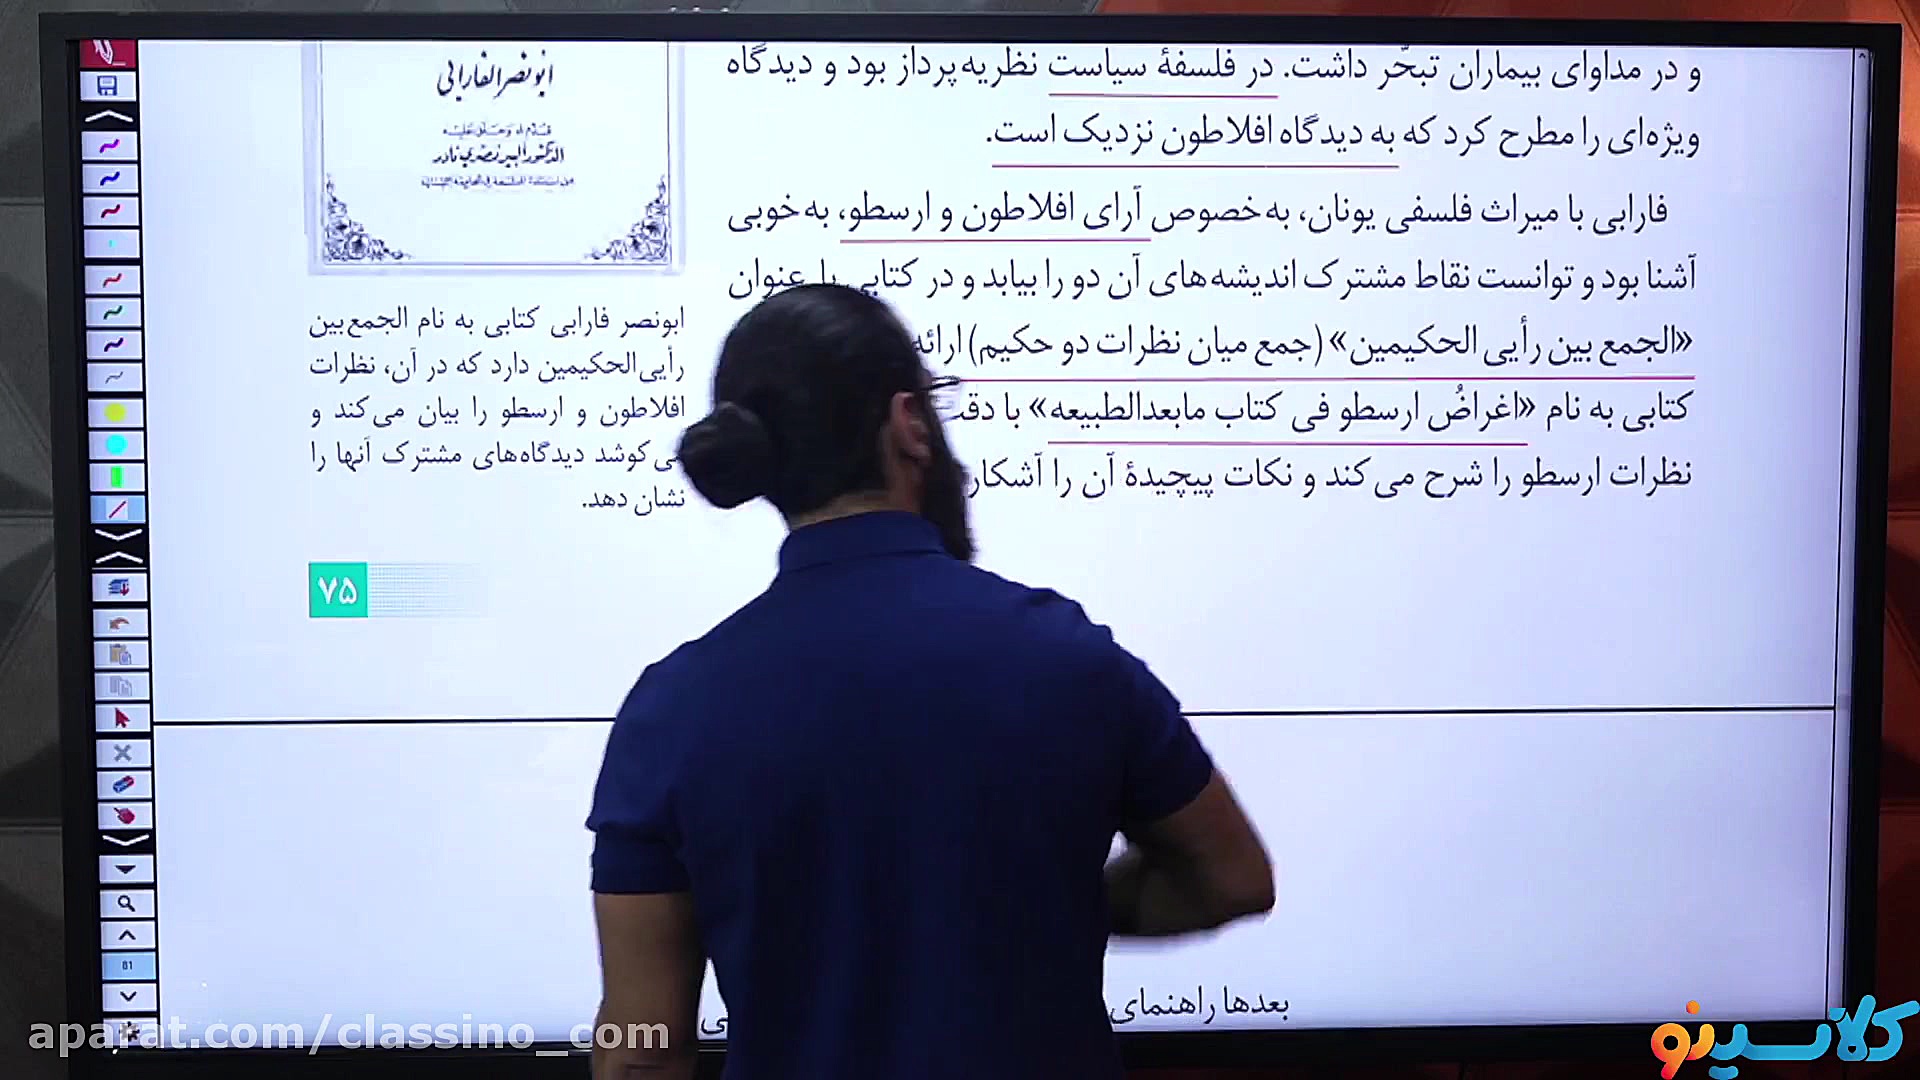 و در مداوای بیماران تبحّر داشت. در فلسفهٔ سیاست نظریه‌پرداز بود و دیدگاه
ویژه‌ای را مطرح کرد که به دیدگاه افلاطون نزدیک است.
فارابی با میراث فلسفی یونان، به‌خصوص آرای افلاطون و ارسطو، به‌خوبی
آشنا بود و توانست نقاط مشترک اندیشه‌های آن دو را بیابد و در کتابی با عنوان
«الجمع بین رأیی الحکیمین» (جمع میان نظرات دو حکیم) ارائه
کتابی به نام «اغراضُ ارسطو فی کتاب مابعدالطبیعه» با دقت
نظرات ارسطو را شرح می‌کند و نکات پیچیدهٔ آن را آشکار
ابونصر الفارابی
قدّم له وعلّق عليه
الدكتور البير نصري نادر
ابونصر فارابی کتابی به نام الجمع‌بین
رأیی‌الحکیمین دارد که در آن، نظرات
افلاطون و ارسطو را بیان می‌کند و
می‌کوشد دیدگاه‌های مشترک آنها را
نشان دهد.
۷۵
بعدها راهنمای
81
aparat.com/classino_com
کلاسینو